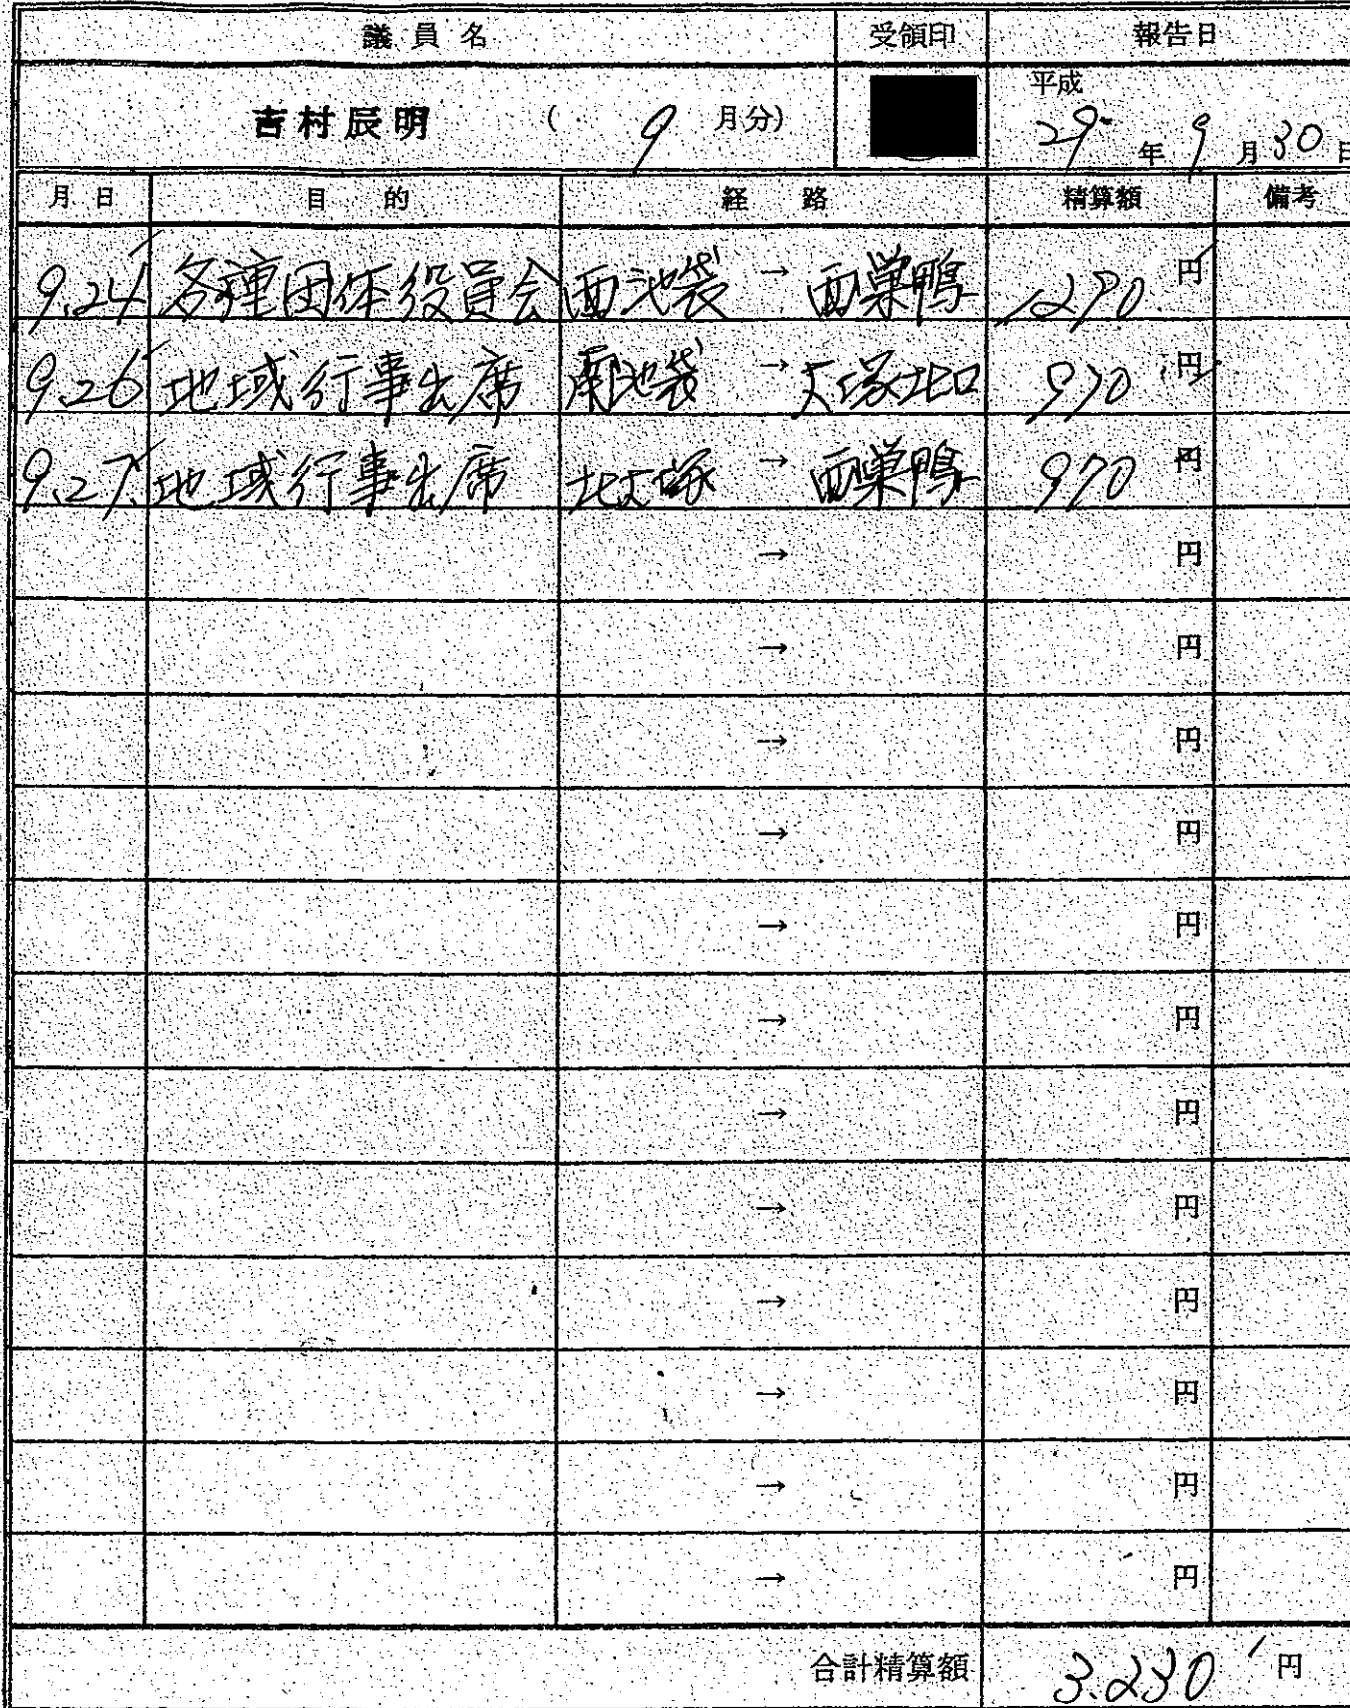 議員名 受領印 報告日
吉村辰明 (9月分) 平成29年9月30日
月日 目的 経路 精算額 備考
9.24 各種団体役員会 西池袋 → 西巣鴨 1290円
9.26 地域行事出席 南池袋 → 大塚北口 970円
9.27 地域行事出席 北大塚 → 西巣鴨 970円
→ 円
→ 円
→ 円
→ 円
→ 円
→ 円
→ 円
→ 円
→ 円
→ 円
→ 円
→ 円
合計精算額 3.230円